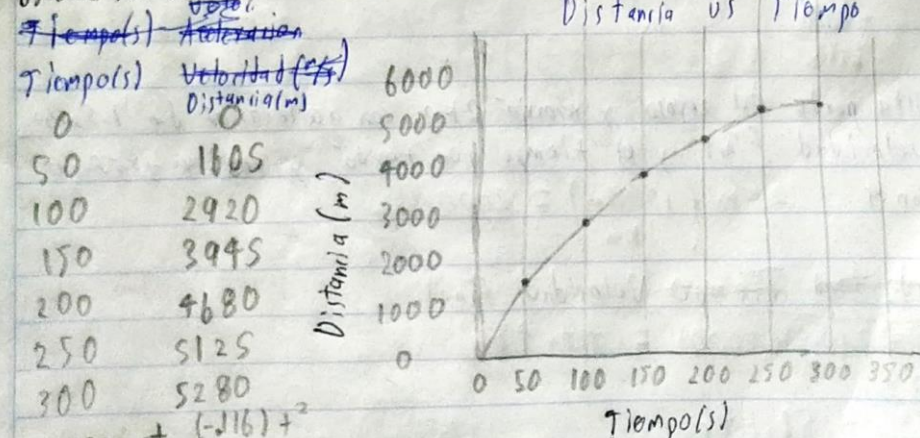 Distancia vs Tiempo
Tiempo(s) Aceleracion
Tiempo(s) Velocidad (m/s)
Distancia(m)
0 0
50 1605
100 2920
150 3945
200 4680
250 5125
300 5280
(-.116)t²
Distancia (m)
6000
5000
4000
3000
2000
1000
0
0 50 100 150 200 250 300 350
Tiempo(s)